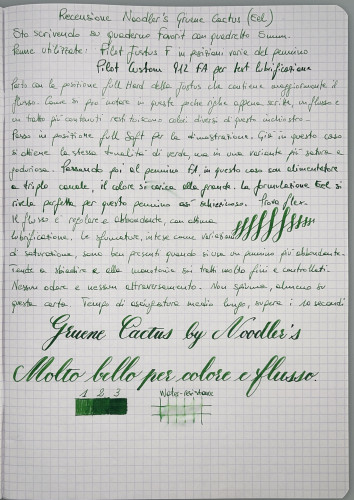 Recensione Noodler's Gruene Cactus (Eel)
Sto scrivendo su quaderno Favorit con quadretto 5mm.
Penne utilizzate: Pilot Justus F in posizioni varie del pennino
Pilot Custom 912 FA per test lubrificazione
Parto con la posizione full Hard della Justus che contiene maggiormente il
flusso. Come si può notare in queste poche righe appena scritte, un flusso e
un tratto più contenuti restituiscono colori diversi di questo inchiostro.
Passo in posizione full Soft per la dimostrazione. Già in questo caso
si ottiene la stessa tonalità di verde, ma in una variante più satura e
godurioso. Passando poi al pennino FA, in questo caso con alimentatore
a triplo canale, il colore si carica alla grande. La formulazione Eel si
rivela perfetta per questo pennino così schizzinoso. Prova flex.
Il flusso è regolare e abbondante, con ottima
lubrificazione. Le sfumature, intese come variazioni
di saturazione, sono ben presenti quando si usa un pennino più abbondante.
Tende a sbiadire e alla monotonia sui tratti molto fini e controllati.
Nessun odore e nessun attraversamento. Non spiuma, almeno su
questa carta. Tempi di asciugatura medio lungo, supera i 20 secondi
Gruene Cactus by Noodler's
Molto bello per colore e flusso.
1 2 3 Water-resistance